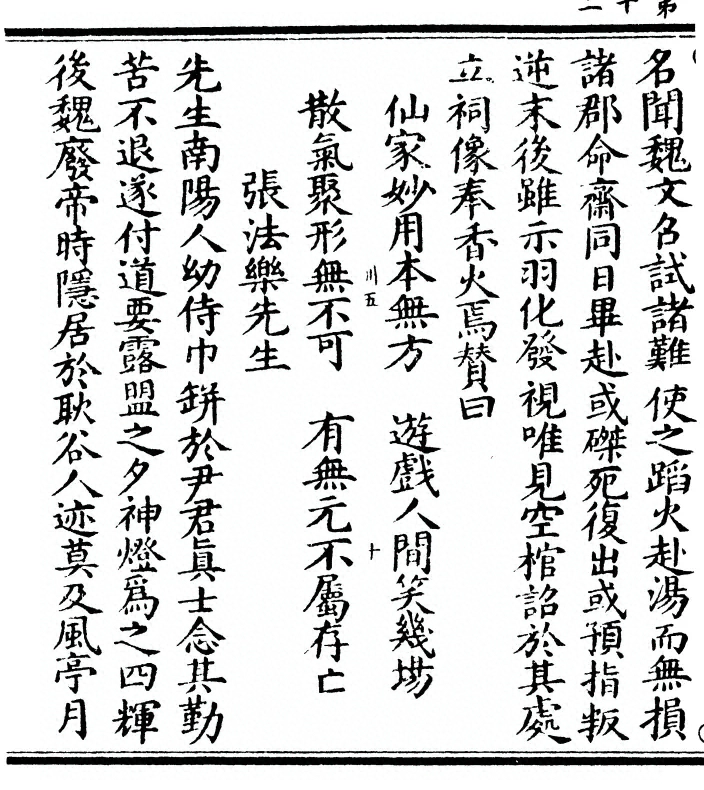 第十二
名聞魏文名試諸難使之蹈火赴湯而無損
諸郡命齋同日畢赴或磔死復出或預指叛
逆末後雖示羽化發視唯見空棺詔於其處
立祠像奉香火焉賛曰
仙家妙用本無方 遊戲人間笑幾場
川五 十
散氣聚形無不可 有無元不屬存亡
張法樂先生
先生南陽人幼侍巾缾於尹君眞士念其勤
苦不退遂付道要露盟之夕神燈爲之四輝
後魏廢帝時隱居於耿谷人迹莫及風亭月